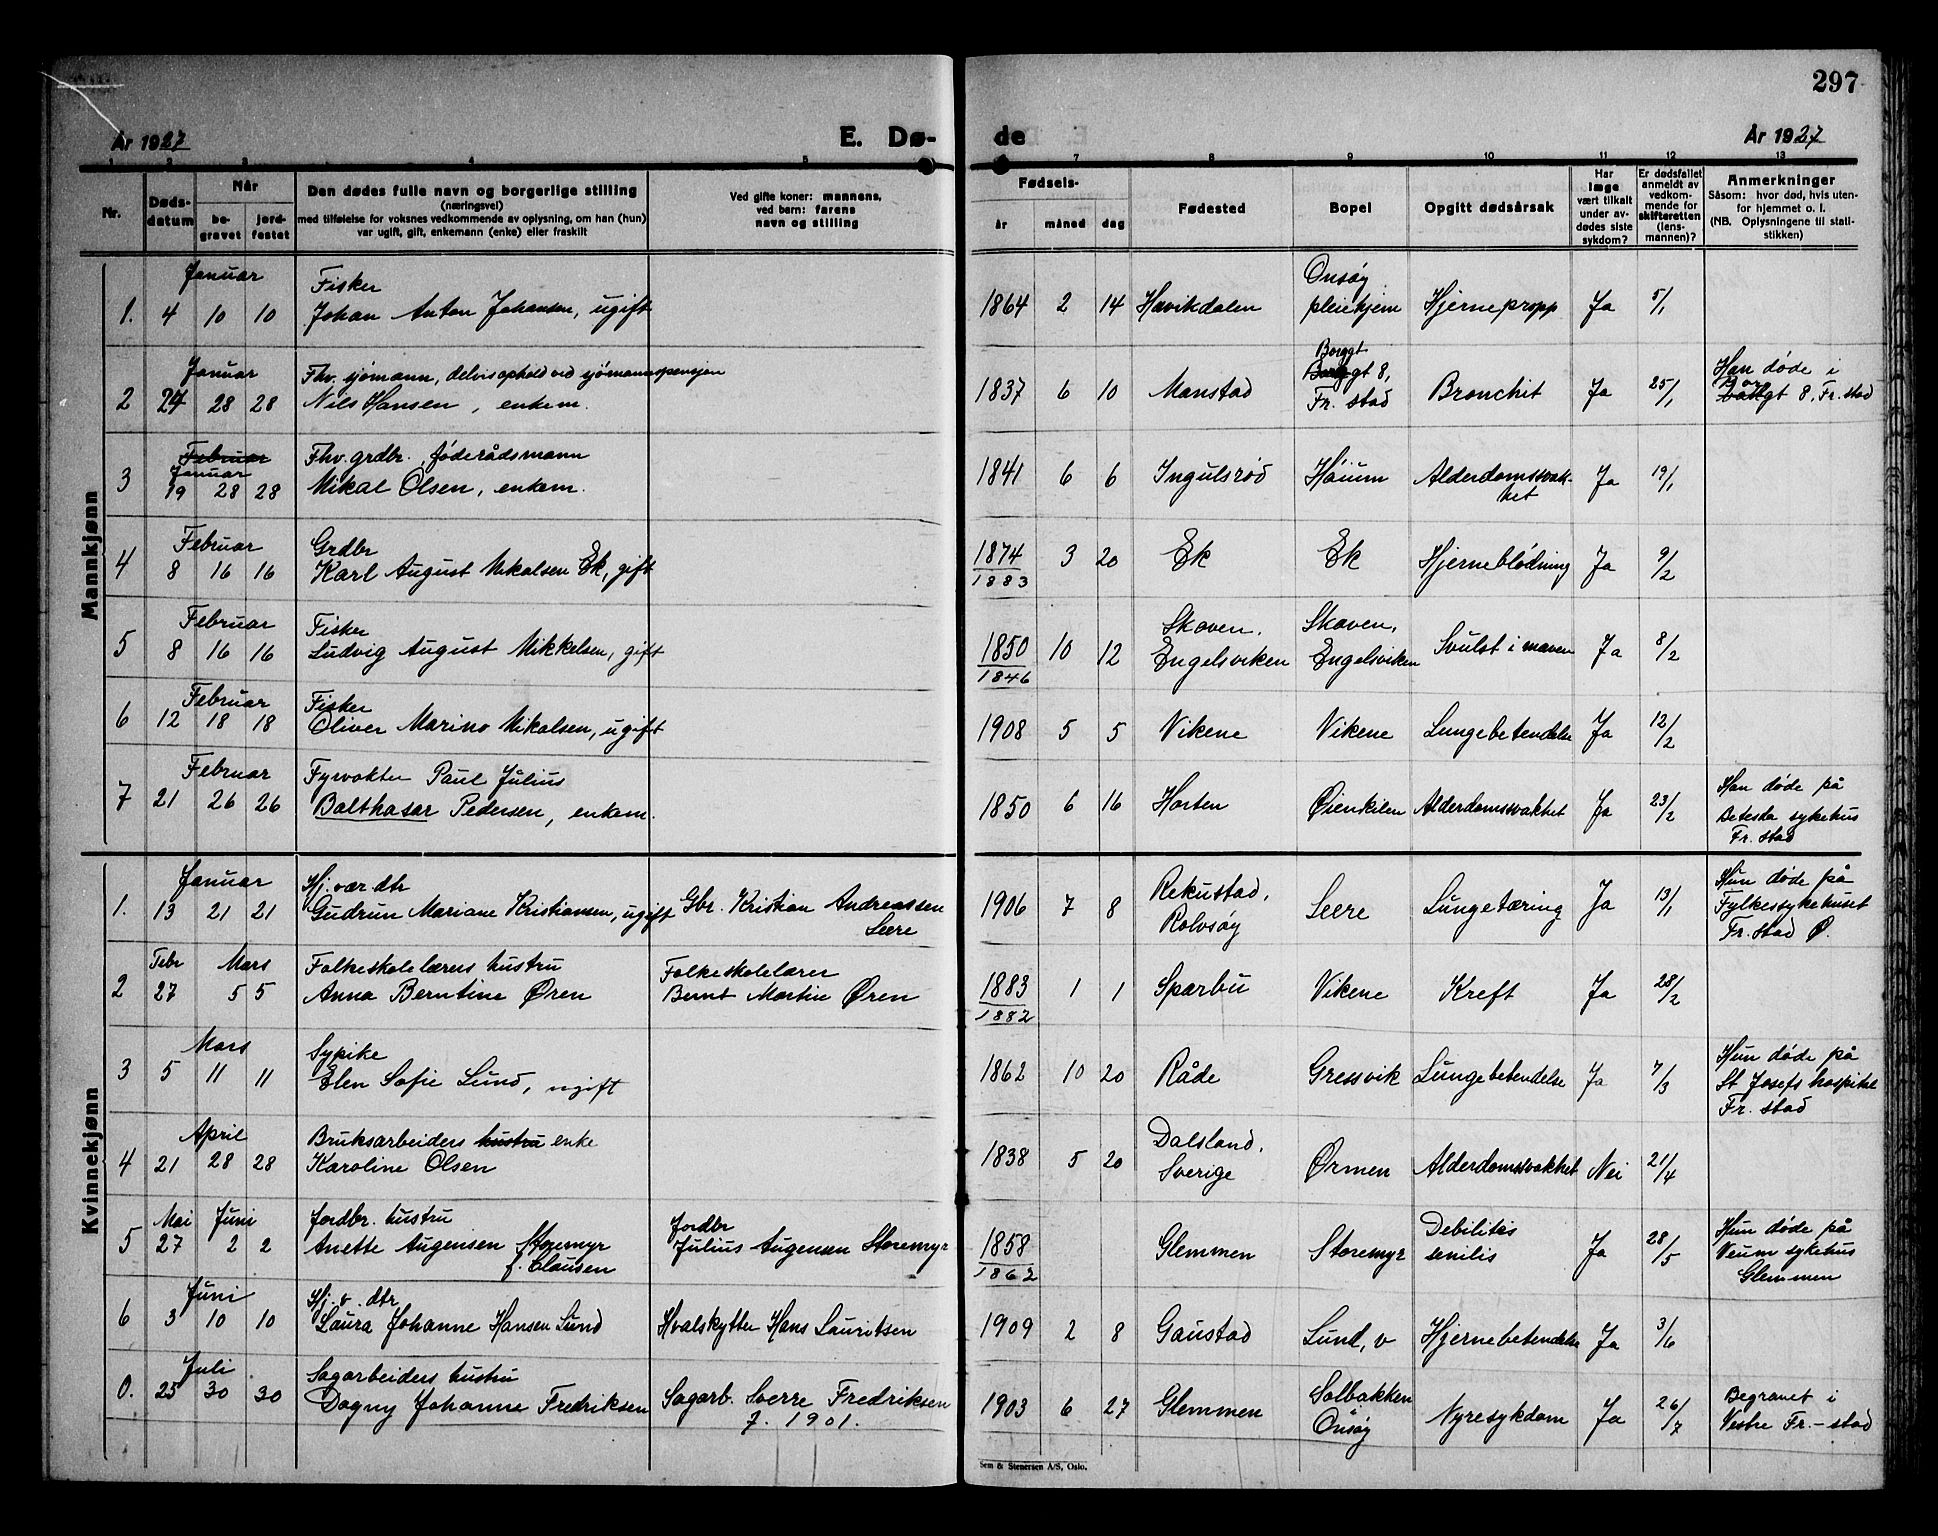 297
År 1927 E. Dø- de År 1927
1 2 3 4 5 7 8 9 10 11 12 13
Nr.
Døds-
datum
Når
be-
gravet
jord-
festet
Den dødes fulle navn og borgerlige stilling
(næringsvei)
med tilføielse for voksnes vedkommende av oplysning, om han (hun)
var ugift, gift, enkemann (enke) eller fraskilt
Ved gifte koner: mannens,
ved barn: farens
navn og stilling
Fødsels-
år måned dag
Fødested
Bopel
Opgitt dødsårsak
Har
læge
vært tilkalt
under av-
dødes siste
sykdom?
Er dødsfallet
anmeldt av
vedkom-
mende for
skifteretten
(lens-
mannen)?
Anmerkninger
Såsom: hvor død, hvis uten-
for hjemmet o. l.
(NB. Oplysningene til stati-
stikken)
Mannkjønn
Januar Fisker Onsøy
1. 4 10 10 Johan Anton Johansen, ugift 1864 2 14 Havikdalen pleiehjem Hjernepropp Ja 5/1
Januar Fhv. sjømann, delvis ophold ved sjømannspensjon Borggt Han døde i
2 24 28 28 Nils Hansen, enkem. 1837 6 10 Manstad Borggt 8, Bronchit Ja 25/1 Borggt 8, Fr.stad
Fr. stad
Februar Fhv. grdbr., føderådsmann
Januar
3 19 28 28 Mikal Olsen, enkem. 1841 6 6 Ingulsrød Høium Alderdomssvak- Ja 19/1
het
Februar Grdbr
4 8 16 16 Karl August Mikalsen Ek, gift 1874 3 20 Ek Ek Hjerneblødning Ja 9/2
1883
Februar Fisker Skoven, Skoven,
5 8 16 16 Ludvig August Mikkelsen, gift 1850 10 12 Engelsviken Engelsviken Svulst i maven Ja 8/2
1846
Februar Fisker
6 12 18 18 Oliver Marino Mikalsen, ugift 1908 5 5 Vikene Vikene Lungebetendelse Ja 12/2
Februar Fyrvokter Paul Julius Han døde på
7 21 26 26 Balthasar Pedersen, enkem. 1850 6 16 Horten Øienkilen Alderdomssvakhet Ja 23/2 Betesda sykehus
Fr. stad
Kvinnekjønn
Januar Hj. vær. dtr Rekustad, Hun døde på
1. 13 21 21 Gudrun Mariane Kristiansen, ugift Gbr. Kristian Andreassen 1906 7 8 Rolvsøy Seere Lungetæring Ja 13/1 Fylkessykehuset
Seere Fr. stad Ø.
Febr Mars Folkeskolelærers hustru Folkeskolelærer
2 27 5 5 Anna Berntine Øren Bernt Martin Øren 1883 1 1 Sparbu Vikene Kreft Ja 28/2
1882
Mars Sypike Hun døde på
3 5 11 11 Elen Sofie Lund, ugift 1862 10 20 Råde Gressvik Lungebetendelse Ja 7/3 St Josefs hospital
Fr. stad
April Bruksarbeiders hustru enke Dalsland,
4 21 28 28 Karoline Olsen 1838 5 20 Sverige Ørmen Alderdomssvakhet Nei 21/4
Mai Juni Jordbr. hustru Jordbr Debilitis Hun døde på
5 27 2 2 Anette Augensen Storemyr Julius Augensen Storemyr 1858 Glemmen Storemyr senilis Ja 28/5 Veum sykehus
f. Clausen 1862 Glemmen
Juni Hj. v. dtr
6 3 10 10 Laura Johanne Hansen Lund Hvalskytter Hans Lauritsen 1909 2 8 Gaustad Lund, v Hjernebetendelse Ja 3/6
Juli Sagarbeiders hustru Solbakken Begravet i
0. 25 30 30 Dagny Johanne Fredriksen Sagarb. Sverre Fredriksen 1903 6 27 Glemmen Onsøy Nyresykdom Ja 26/7 Vestre Fr.-stad
f. 1901.
Sem & Stenersen A/S, Oslo.